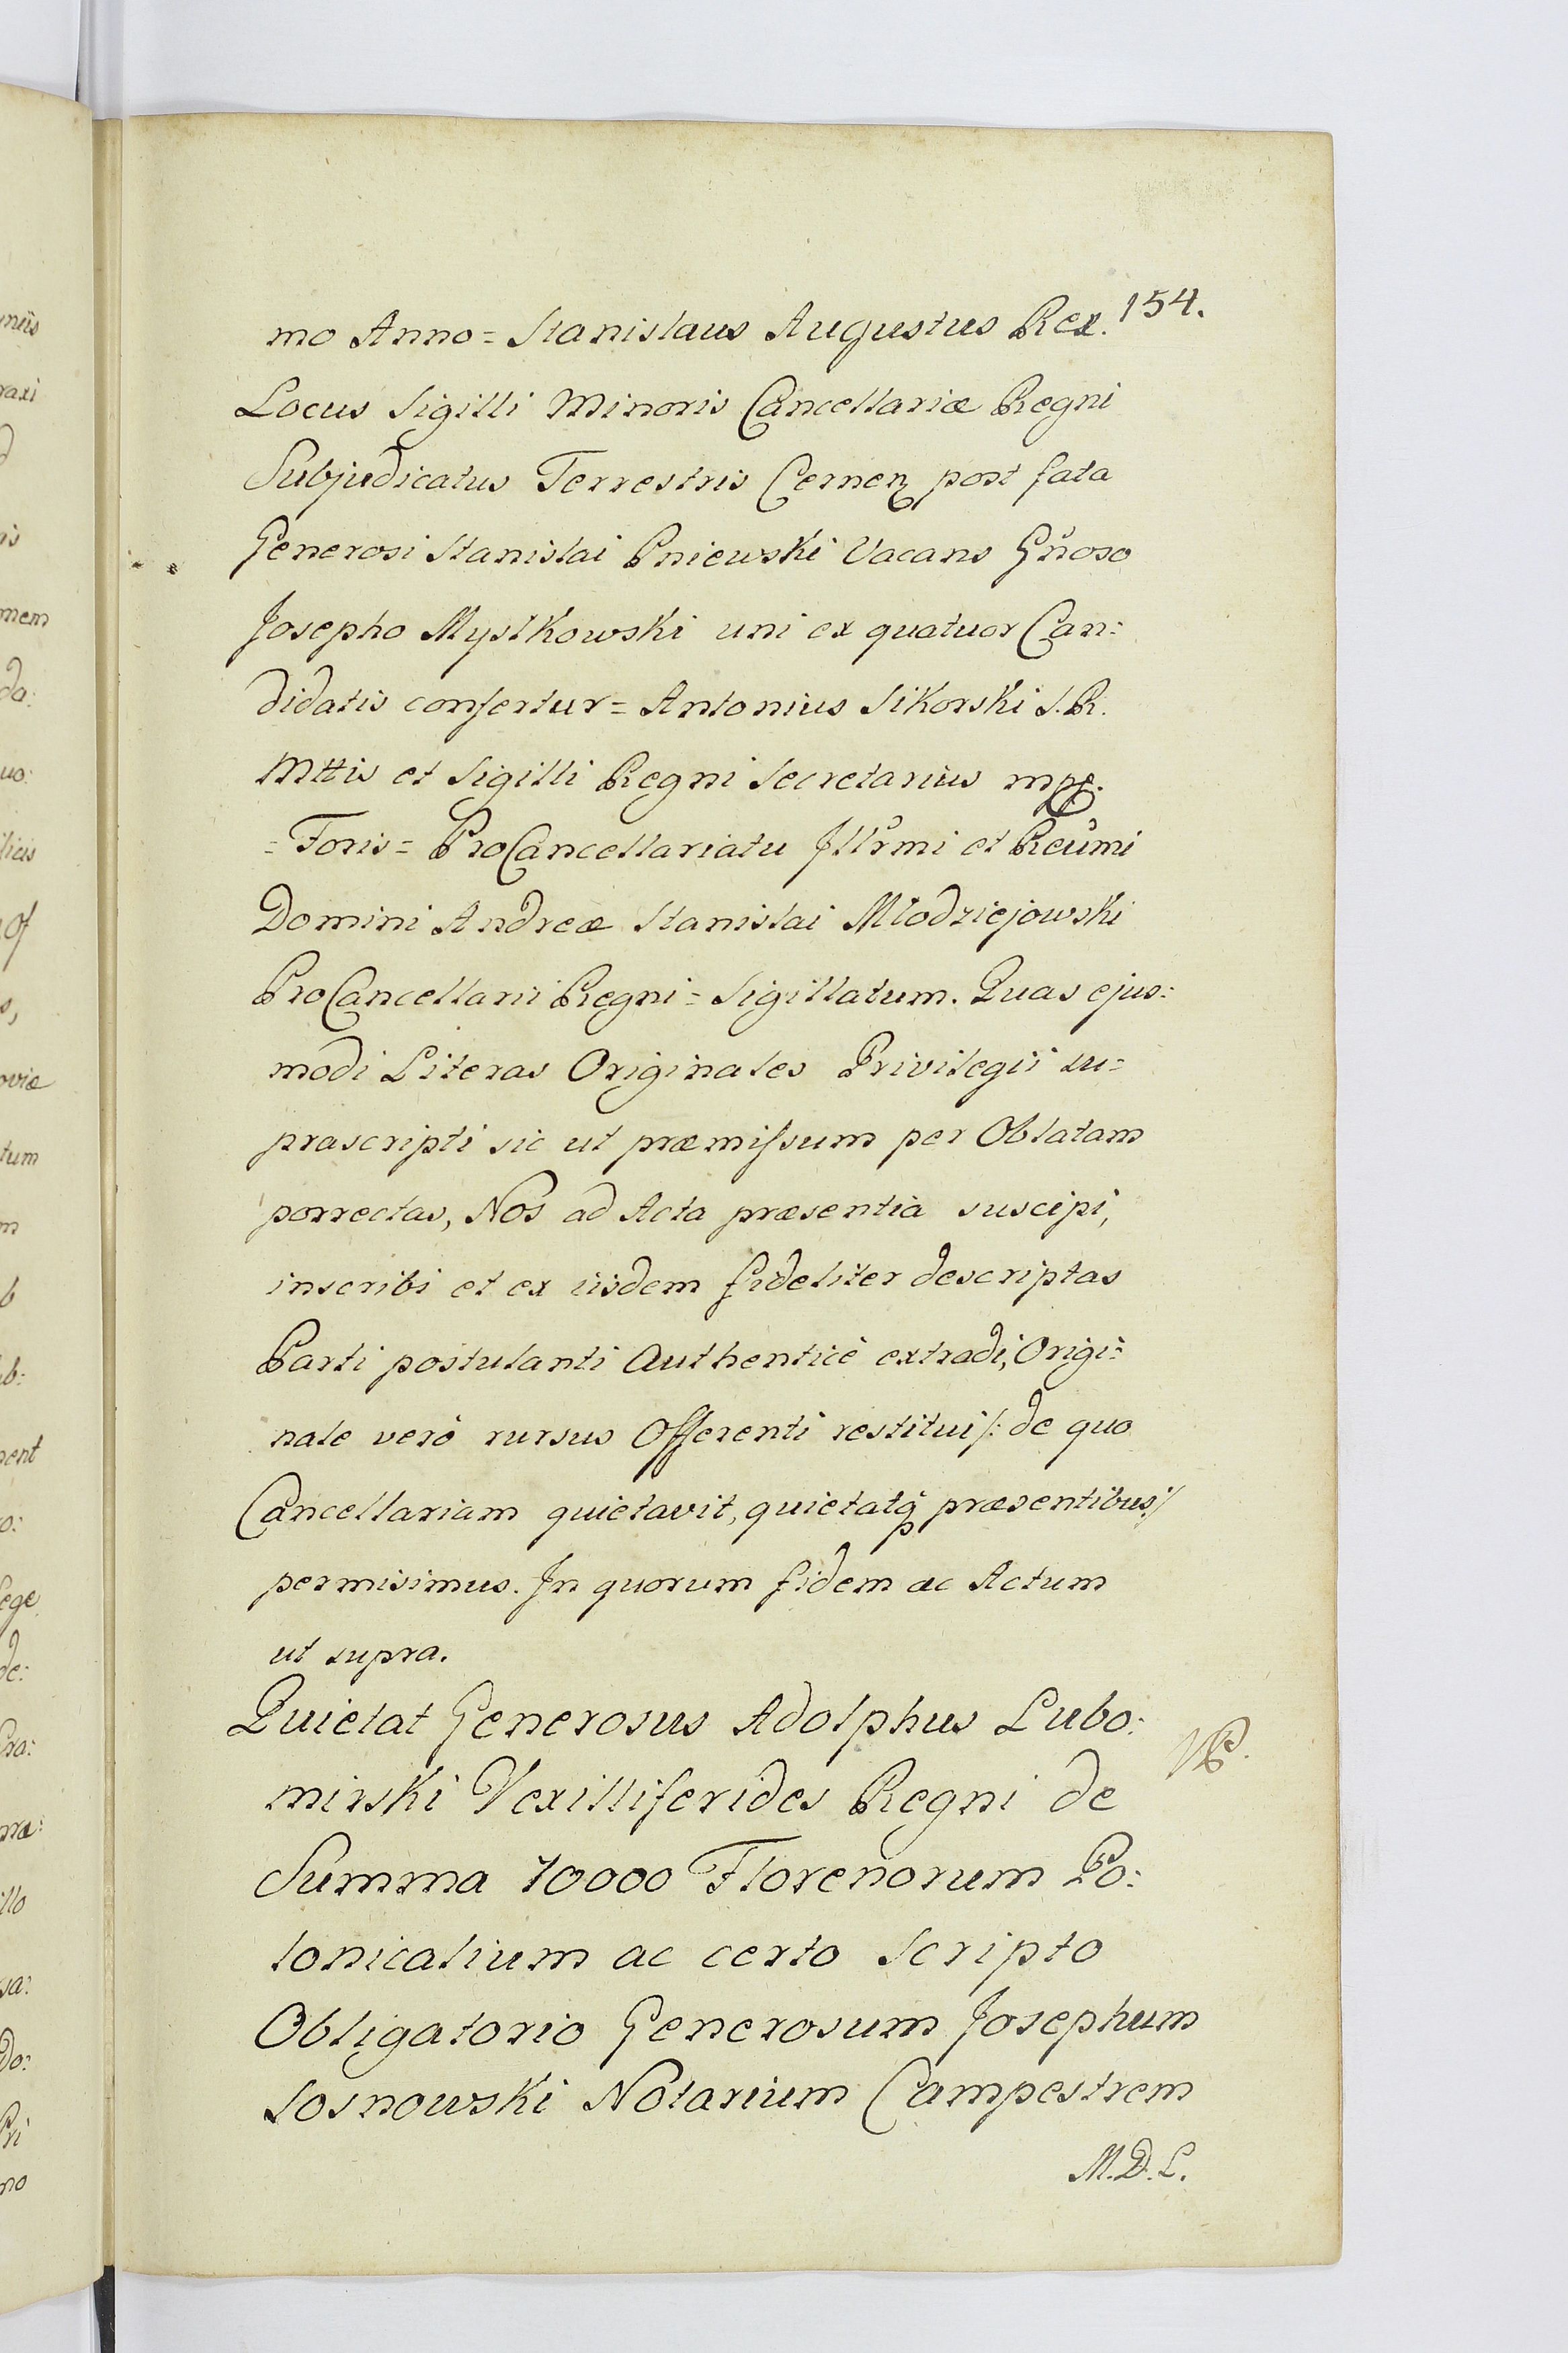 154.
mo Anno = Stanislaus Augustus Rex.
Locus Sigilli Minoris Cancellariæ Regni
Subjudicatus Terrestris Cernen post fata
Generosi Stanislai Pniewski Vacans Gnoso
Josepho Mystkowski uni ex quatuor Can:
didatis confertur = Antonius Sikorski S. R.
Mttis et Sigilli Regni Secretarius mpp.
= Foris = ProCancellariatu Jllrmi et Reumi
Domini Andreæ Stanislai Młodziejowski
ProCancellarii Regni = Sigillatum. Quas ejus:
modi Literas Originales Privilegii su=
prascripti sic ut præmissum per Oblatam
porrectas, Nos ad Acta præsentia suscipi,
inscribi et ex iisdem fideliter descriptas
Parti postulanti Authenticè extradi, Origi=
nale verò rursus Offerenti restitui /: de quo
Cancellariam quietavit, quietatq præsentibus :/
permisimus. Jn quorum fidem ac Actum
ut supra.
Quietat Generosus Adolphus Lubo:
mirski Vexilliferides Regni de
Summa 10000 Florenorum Po:
lonicalium ac certo Scripto
Obligatorio Generosum Josephum
Sosnowski Notarium Campestrem
M. D. L.